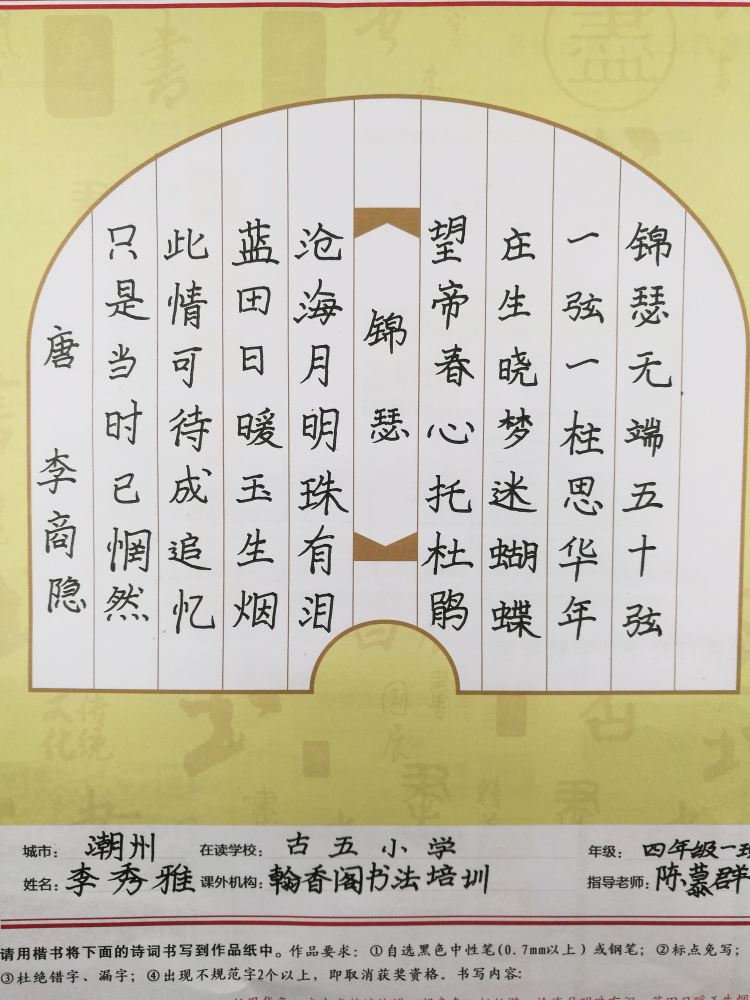 锦瑟无端五十弦
一弦一柱思华年
庄生晓梦迷蝴蝶
望帝春心托杜鹃
锦瑟
沧海月明珠有泪
蓝田日暖玉生烟
此情可待成追忆
只是当时已惘然
唐 李商隐
城市: 潮州 在读学校: 古五小学 年级: 四年级一班
姓名: 李秀雅 课外机构: 翰香阁书法培训 指导老师: 陈慕群
请用楷书将下面的诗词书写到作品纸中。作品要求: ①自选黑色中性笔(0.7mm以上)或钢笔; ②标点免写;
③杜绝错字、漏字; ④出现不规范字2个以上, 即取消获奖资格。书写内容: